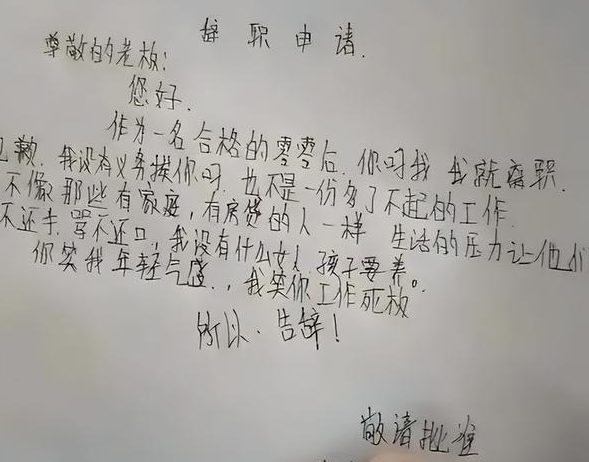 辞职申请.
尊敬的老板:
您好.
作为一名合格的零零后.你呵我 我就离职.
歉.我没有义务挨你呵.也不是一份多了不起的工作.
不像那些有家庭,有房贷的人一样 生活的压力让他们
不还手.骂不还口,我没有什么女人.孩子要养。
你笑我年轻气盛.,我笑你工作死板
所以.告辞!
敬请批准